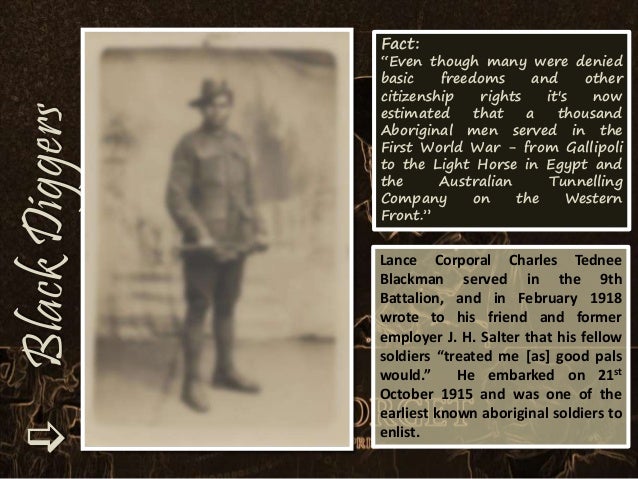 Black Diggers
Fact:
“Even though many were denied
basic freedoms and other
citizenship rights it's now
estimated that a thousand
Aboriginal men served in the
First World War - from Gallipoli
to the Light Horse in Egypt and
the Australian Tunnelling
Company on the Western
Front.”
Lance Corporal Charles Tednee
Blackman served in the 9th
Battalion, and in February 1918
wrote to his friend and former
employer J. H. Salter that his fellow
soldiers “treated me [as] good pals
would.” He embarked on 21st
October 1915 and was one of the
earliest known aboriginal soldiers to
enlist.